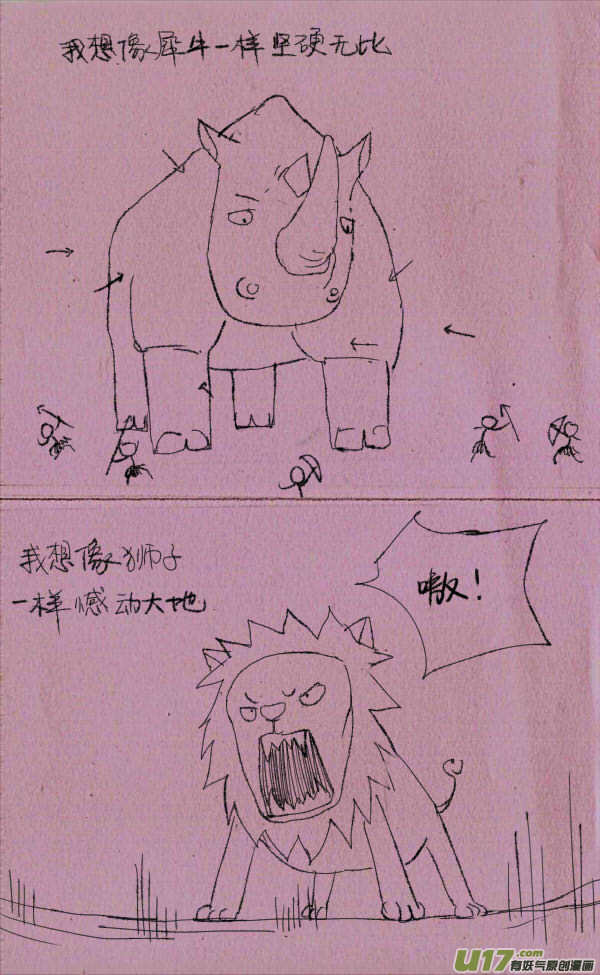 我想像犀牛一样坚硬无比
我想像狮子
一样憾动大地
嗷！
U17.com
有妖气原创漫画